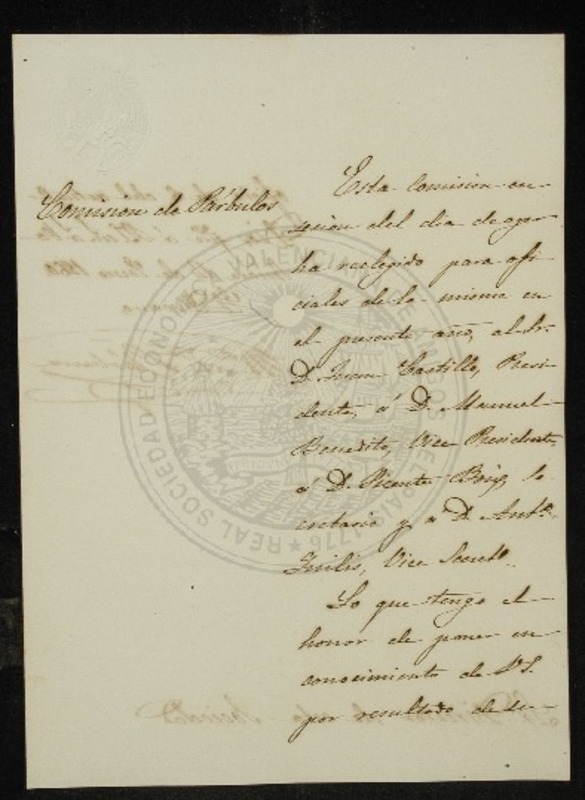 Comision de Párbulos
Esta Comision en
sesion del dia de ayer
ha reelegido para ofi-
ciales de la misma en
el presente año, al Sr.
D. Juan Castillo, Presi-
dente, á D. Manuel
Benedito, Vice Presidente,
á D. Vicente Boix, Se-
cretario y a D. Antº.
Vice Secretº.
Lo que tengo el
honor de poner en
conocimiento de V. S.
por resultado de su
REAL SOCIEDAD ECONOMICA VALENCIANA DE AMIGOS DEL PAIS 1776